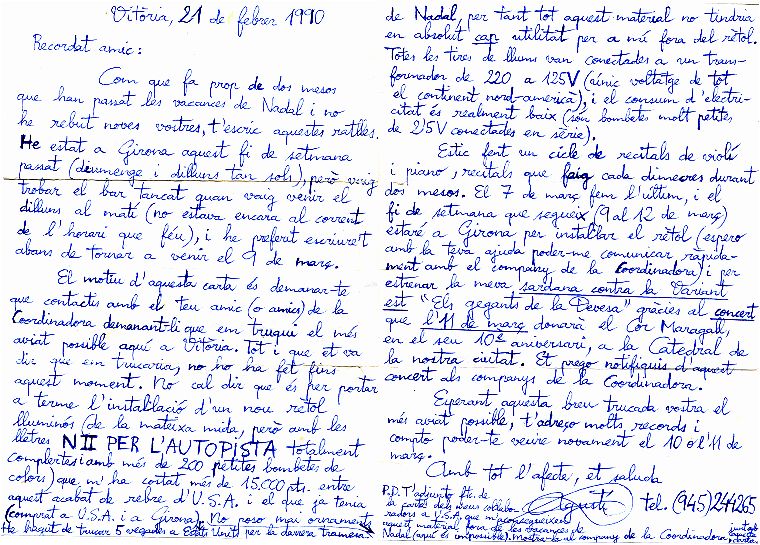 Vitòria, 21 de febrer 1990
Recordat amic:
Com que fa prop de dos mesos
que han passat les vacances de Nadal i no
he rebut noves vostres, t'escric aquestes ratlles.
He estat a Girona aquest fi de setmana
passat (diumenge i dilluns tan sols), però vaig
trobar el bar tancat quan vaig venir el
dilluns al matí (no estava encara al corrent
de l'horari que féu), i he preferit escriure't
abans de tornar a venir el 9 de març.
El motiu d'aquesta carta és demanar-te
que contactis amb el teu amic (o amics) de la
Coordinadora demanant-li que em truqui el més
aviat possible aquí a Vitòria. Tot i que et va
dir que em trucaria, no ho ha fet fins
aquest moment. No cal dir que és per portar
a terme l'instal·lació d'un nou rètol
lluminós (de la mateixa mida, però amb les
lletres N II PER L'AUTOPISTA totalment
complertes i amb més de 200 petites bombetes de
colors) que m'ha costat més de 15.000 pts. entre
aquest acabat de rebre d'U.S.A. i el que ja tenia
(comprat a U.S.A. i a Girona). No poso mai ornaments
He hagut de trucar 5 vegades a Estats Units per la darrera tramesa.
de Nadal, per tant tot aquest material no tindria
en absolut cap utilitat per a mi fora del rètol.
Totes les tires de llums van conectades a un trans-
formador de 220 a 125V (únic voltatge de tot
el continent nord-americà), i el consum d'electri-
citat és realment baix (són bombetes molt petites
de 2'5V conectades en sèrie).
Estic fent un cicle de recitals de violí
i piano, recitals que faig cada dimecres durant
dos mesos. El 7 de març fem l'últim, i el
fi de setmana que segueix (9 al 12 de març)
estaré a Girona per instal·lar el rètol (espero
amb la teva ajuda poder-me comunicar ràpida-
ment amb el company de la Coordinadora) i per
estrenar la meva sardana contra la Variant
est "Els gegants de la Devesa" gràcies al concert
que l'11 de març donarà el Cor Maragall,
en el seu 10è aniversari, a la Catedral de
la nostra ciutat. Et prego notifiquis d'aquest
concert als companys de la Coordinadora.
Esperant aquesta breu trucada vostra el
més aviat possible, t'adreço molts records i
compto poder-te veure novament el 10 o l'11 de
març.
Amb tot l'afecte, et saluda
Agustí
tel. (945) 244265
P.D. T'adjunto ftc. de
la carta dels meus col·labo-
radors a U.S.A. que m'aconsegueixen
aquest material fora de les vacances de
Nadal (aquí és impossible). Mostra-la al company de la Coordinadora